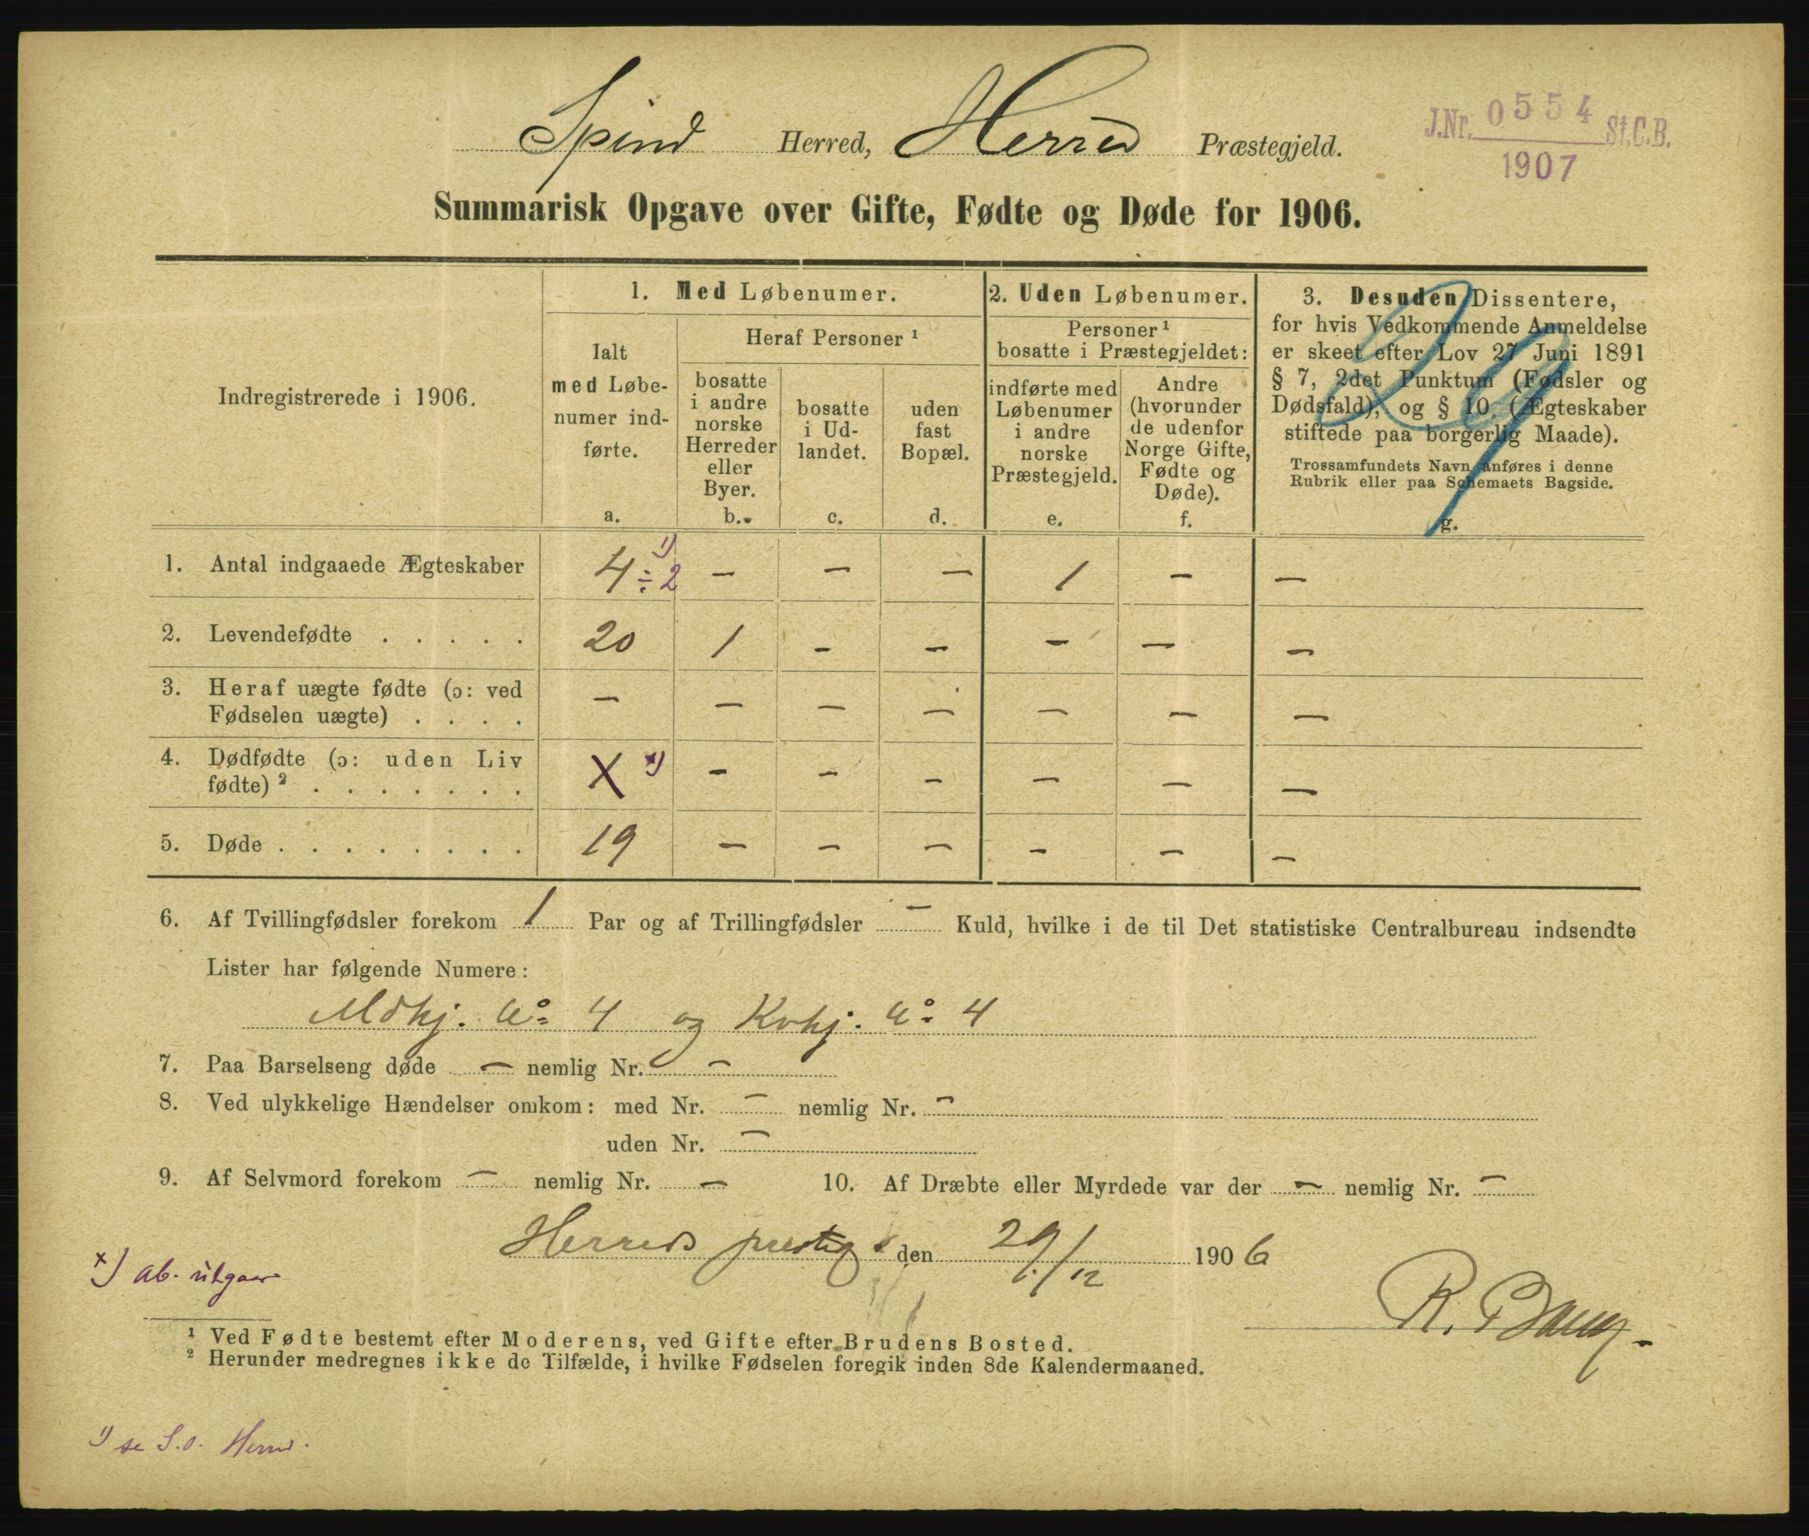 Spind Herred, Herred Præstegjeld.
J.Nr. 0554 St.C.B.
1907
Summarisk Opgave over Gifte, Fødte og Døde for 1906.
Indregistrerede i 1906.
1. Med Løbenumer.
Ialt
med Løbe-
numer ind-
førte.
a.
Heraf Personer ¹
bosatte
i andre
norske
Herreder
eller
Byer.
b.
bosatte
i Ud-
landet.
c.
uden
fast
Bopæl.
d.
2. Uden Løbenumer.
Personer ¹
bosatte i Præstegjeldet:
indførte med
Løbenumer
i andre
norske
Præstegjeld.
e.
Andre
(hvorunder
de udenfor
Norge Gifte,
Fødte og
Døde).
f.
3. Desuden Dissentere,
for hvis Vedkommende Anmeldelse
er skeet efter Lov 27 Juni 1891
§ 7, 2det Punktum (Fødsler og
Dødsfald), og § 10 (Ægteskaber
stiftede paa borgerlig Maade).
Trossamfundets Navn anføres i denne
Rubrik eller paa Schemaets Bagside.
g.
1. Antal indgaaede Ægteskaber 4 ÷ 2 ¹) — — — 1 — —
2. Levendefødte . . . . . 20 1 — — — — —
3. Heraf uægte fødte (ɔ: ved
Fødselen uægte) . . . . — — — — — — —
4. Dødfødte (ɔ: uden Liv
fødte) ² . . . . . . . X ˣ) — — — — — —
5. Døde . . . . . . . . 19 — — — — — —
6. Af Tvillingfødsler forekom 1 Par og af Trillingfødsler — Kuld, hvilke i de til Det statistiske Centralbureau indsendte
Lister har følgende Numere:
Mdkj. No 4 og Kvkj. No 4
7. Paa Barselseng døde — nemlig Nr. —
8. Ved ulykkelige Hændelser omkom: med Nr. — nemlig Nr. —
uden Nr. —
9. Af Selvmord forekom — nemlig Nr. — 10. Af Dræbte eller Myrdede var der — nemlig Nr. —
Herreds prestg. den 29/12 1906
ˣ) ab. utgaar
¹ Ved Fødte bestemt efter Moderens, ved Gifte efter Brudens Bosted.
² Herunder medregnes ikke de Tilfælde, i hvilke Fødselen foregik inden 8de Kalendermaaned.
¹) se S.o. Herred.